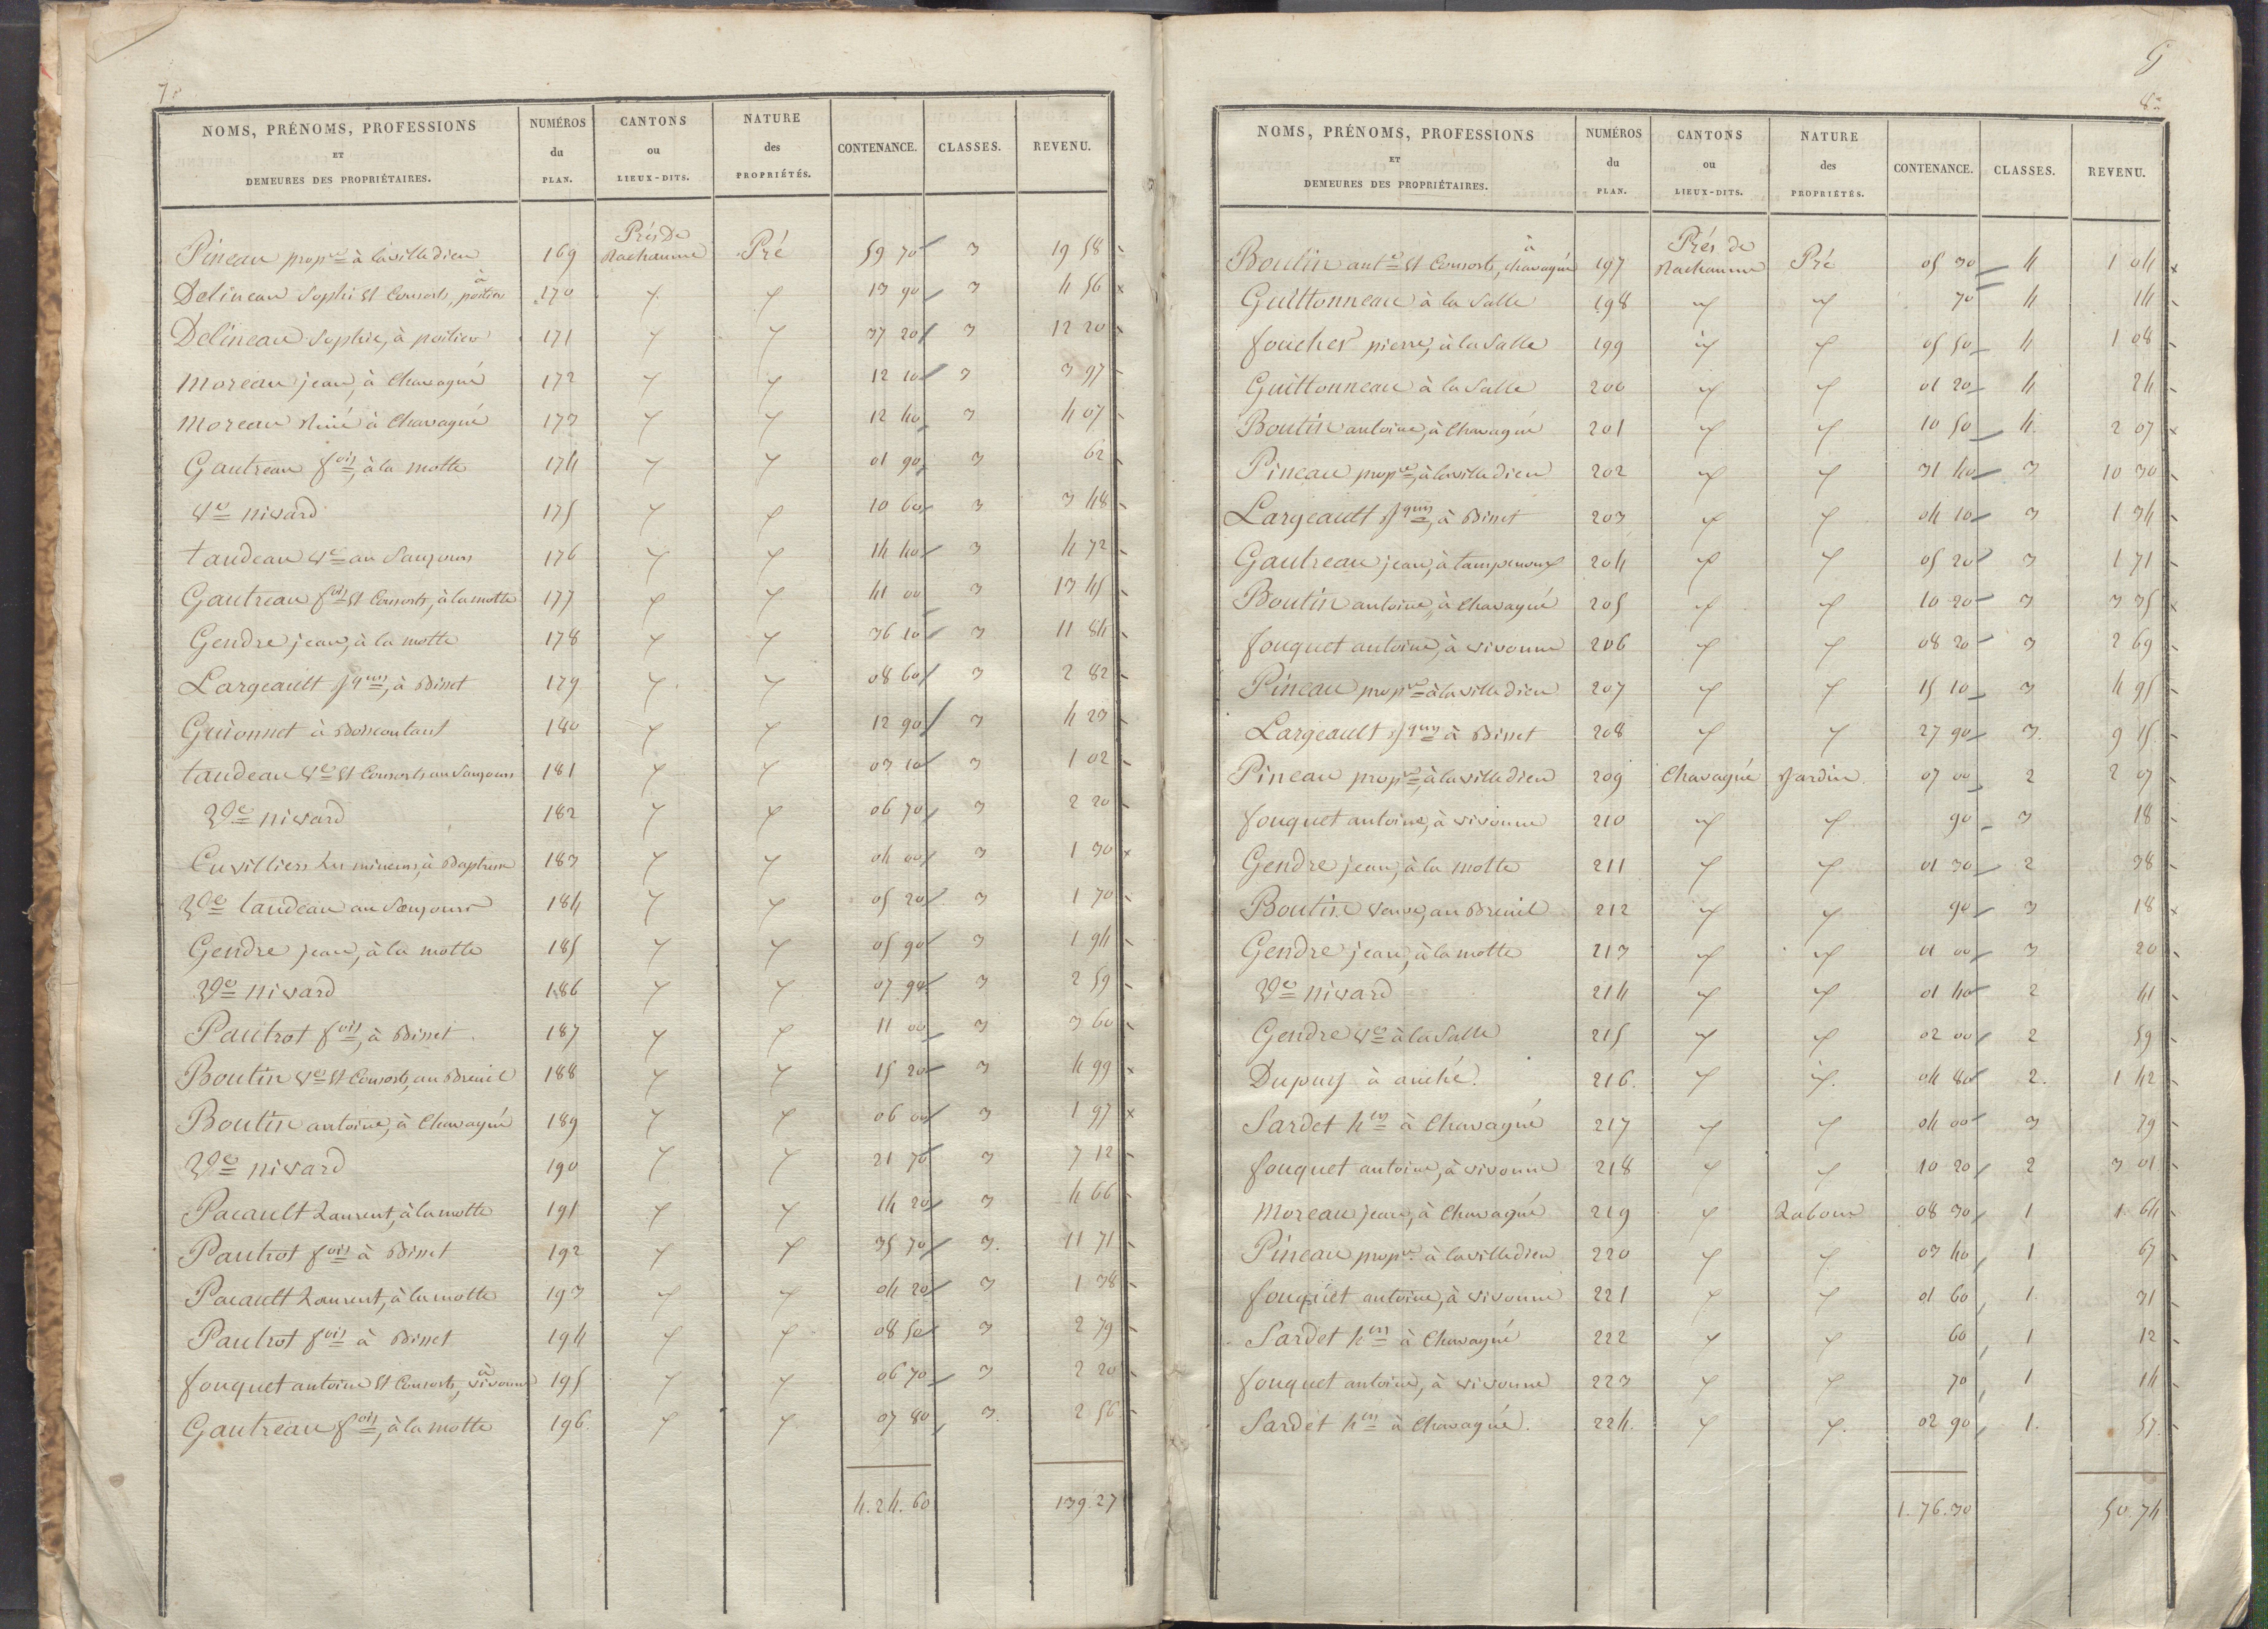 7e
NOMS, PRÉNOMS, PROFESSIONS ET DEMEURES DES PROPRIÉTAIRES. NUMÉROS du PLAN. CANTONS ou LIEUX-DITS. NATURE des PROPRIÉTÉS. CONTENANCE. CLASSES. REVENU.
Pineau propre à lavilledieu 169 Prés De Rachaume Pré 59 70 3 19 58
Delineau Sophie et Consorts, à poitiers 170 y y 13 90 3 4 56
Delineau Sophie, à poitiers 171 y y 37 20 3 12 20
Moreau jean, à Chavagné 172 y y 12 10 3 3 97
Moreau Réné à Chavagné 173 y y 12 40 3 4 07
Gautreau fois, à la motte 174 y y 01 90 3 62
Ve nivard 175 y y 10 60 3 3 48
taudeau Ve au Saujours 176 y y 14 40 3 4 72
Gautreau fois et Consorts, à la motte 177 y y 41 00 3 13 45
Gendre jean, à la motte 178 y y 36 10 3 11 84
Largeault jques, à Binet 179 y y 08 60 3 2 82
Guionnet à Boiscoutant 180 y y 12 90 3 4 23
taudeau Ve et Consorts au Saujours 181 y y 03 10 3 1 02
Ve nivard 182 y y 06 70 3 2 20
Cuvilliers Les mineurs, à 183 y y 04 00 3 1 30
Ve taudeau au Saujours 184 y y 05 20 3 1 70
Gendre jean, à la motte 185 y y 05 90 3 1 94
Ve nivard 186 y y 07 90 3 2 59
Pautrot fois, à Binet 187 y y 11 00 3 3 60
Boutin Ve et Consorts, au Breuil 188 y y 15 20 3 4 99
Boutin antoine, à Chavagné 189 y y 06 00 3 1 97
Ve nivard 190 y y 21 70 3 7 12
Pacault Laurent, à la motte 191 y y 14 20 3 4 66
Pautrot fois à Binet 192 y y 35 70 3. 11 71
Pacault Laurent, à la motte 193 y y 04 20 3 1 38
Pautrot fois à Binet 194 y y 08 50 3 2 79
fouquet antoine et Consorts, à vivonne 195 y y 06 70 3 2 20
Gautreau fois, à la motte 196. y y 07 80 3. 2 56
4.24.60 139.27
9
8e
NOMS, PRÉNOMS, PROFESSIONS ET DEMEURES DES PROPRIÉTAIRES. NUMÉROS du PLAN. CANTONS ou LIEUX-DITS. NATURE des PROPRIÉTÉS. CONTENANCE. CLASSES. REVENU.
Boutin ante et Consorts, à chavagné 197 Prés de Rachaume Pré 05 30 4 1 04
Guittonneau à la Salle 198 y y 70 4 14
foucher pierre, à la Salle 199 y y 05 50 4 1 08
Guittonneau à la Salle 200 y y 01 20 4 24
Boutin antoine, à Chavagné 201 y y 10 50 4. 2 07
Pineau propre, à lavilledieu 202 y y 31 40 3 10 30
Largeault jques, à Binet 203 y y 04 10 3 1 34
Gautreau jean, à tampenoux 204 y y 05 20 3 1 71
Boutin antoine, à Chavagné 205 y y 10 20 3 3 35
fouquet antoine, à vivonne 206 y y 08 20 3 2 69
Pineau propre à lavilledieu 207 y y 15 10 3 4 95
Largeault jques à Binet 208 y y 27 90 3. 9 15
Pineau propre, à lavilledieu 209 Chavagné Jardin. 07 00 2 2 07
fouquet antoine, à vivonne 210 y y 90 3 18
Gendre jean, à la motte 211 y y 01 30 2 38
Boutin veuve, au Breuil 212 y y 90 3 18
Gendre jean, à la motte 213 y y 01 00 3 20
Ve nivard 214 y y 01 40 2 41
Gendre Ve à la Salle 215 y y 02 00 2 59
Dupuy à anché. 216. y y. 04 80 2. 1 42
Sardet hers à Chavagné 217 y y 04 00 3 79
fouquet antoine, à vivonne 218 y y 10 20 2 3 01
Moreau jean, à Chavagné 219 y Labour 08 30 1 1 64
Pineau propre à lavilledieu 220 y y 03 40 1. 67
fouquet antoine, à vivonne 221 y y 01 60 1. 31
Sardet hers à Chavagné 222 y y 60 1 12
fouquet antoine, à vivonne 223 y y 70 1 14
Sardet hers à Chavagné. 224. y y. 02 90 1. 57.
1.76.30 50.74